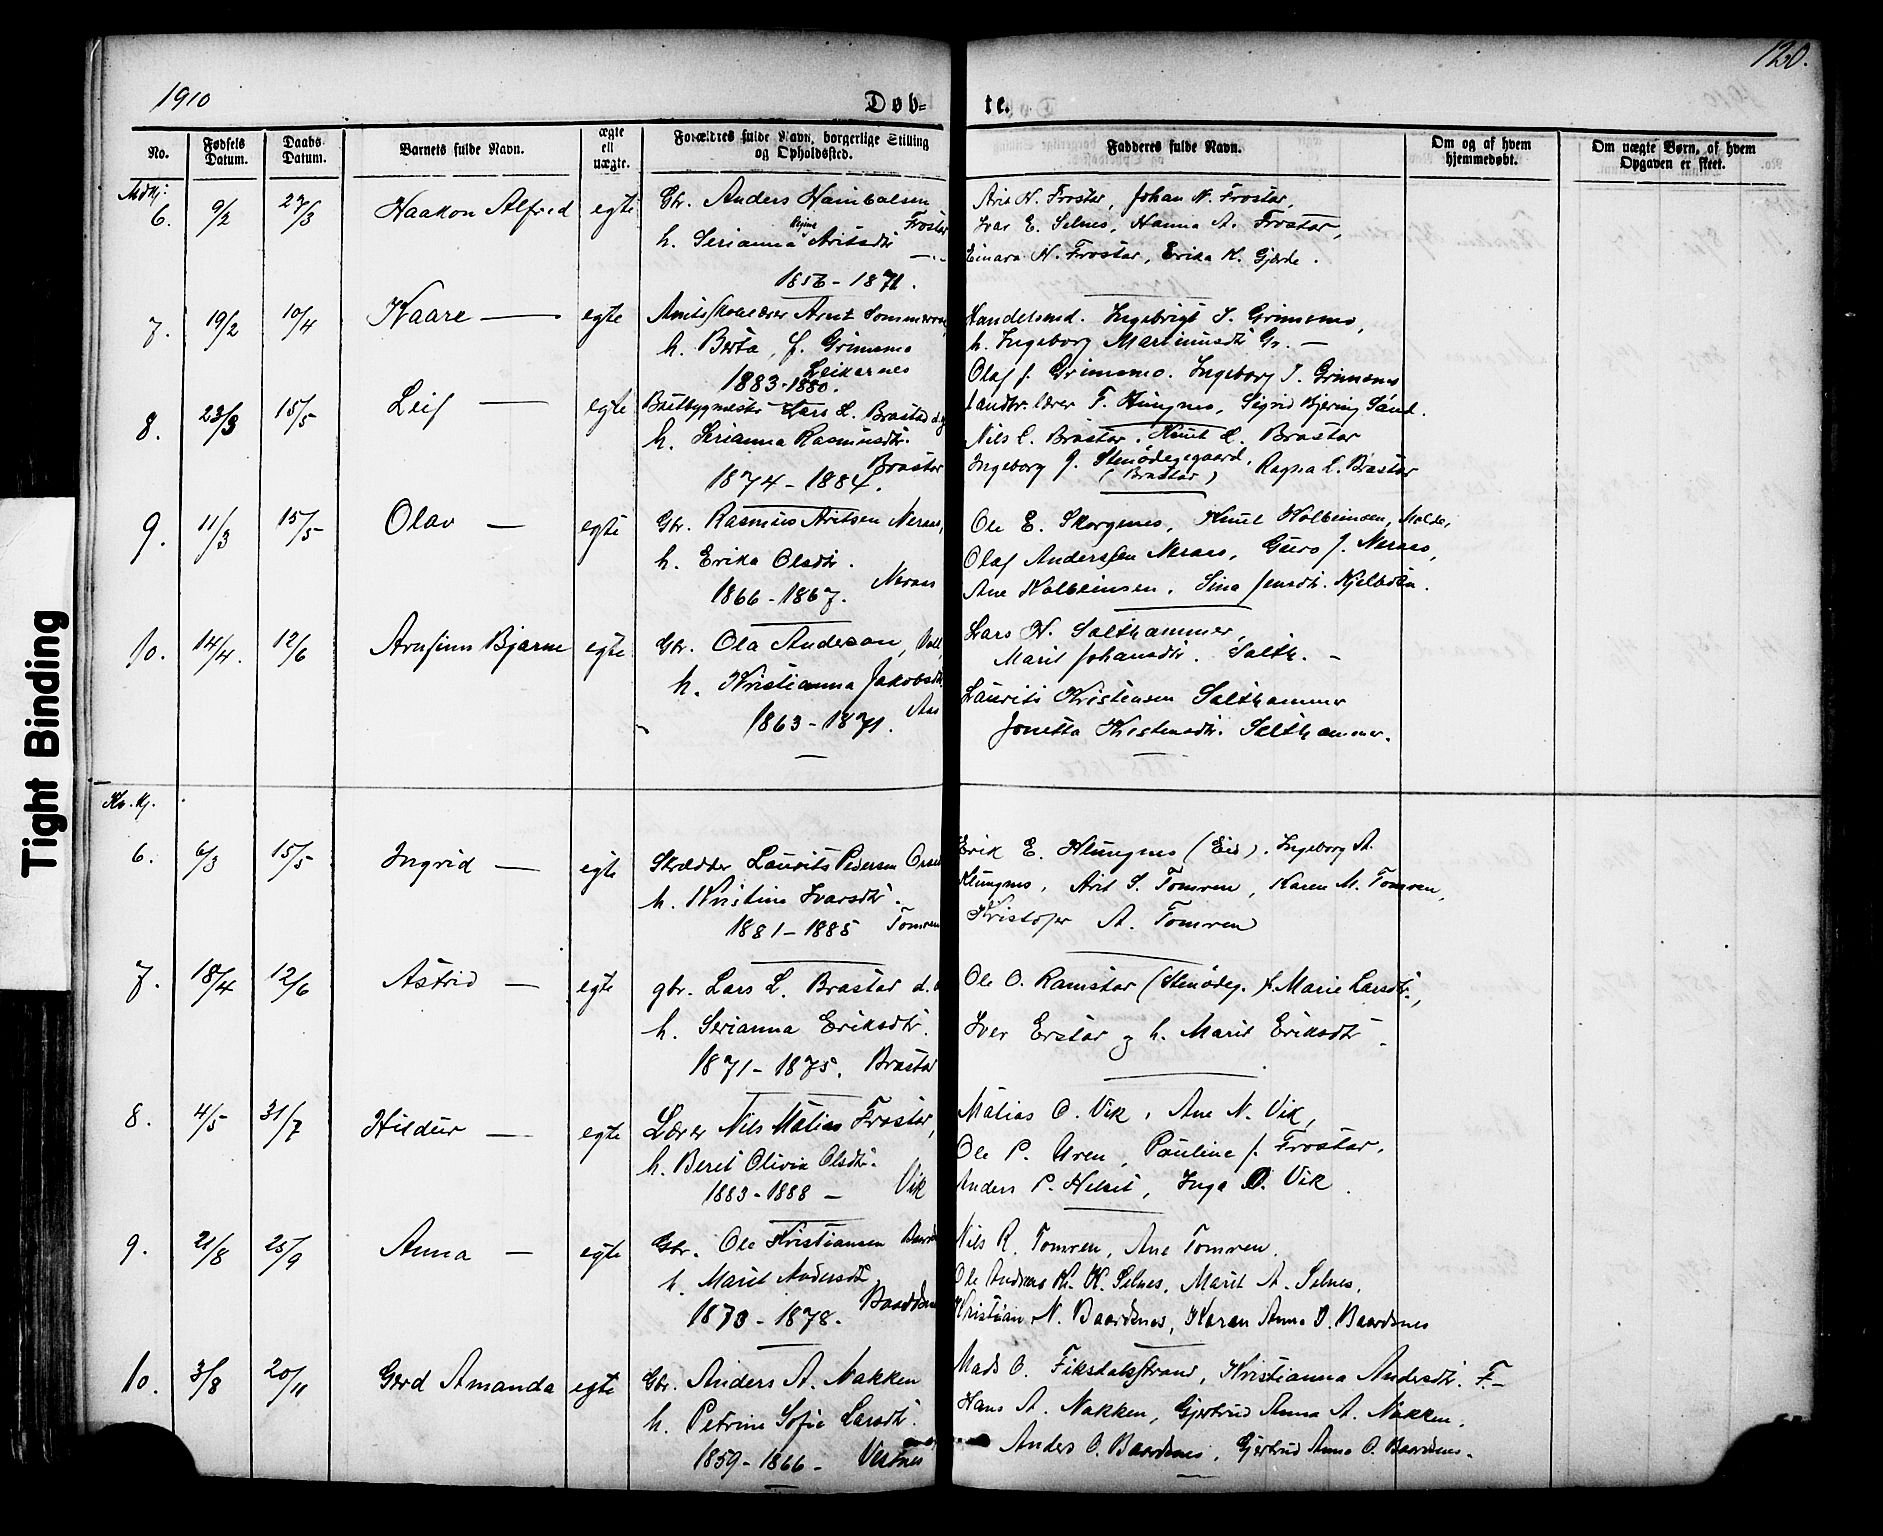 120.
1910
Døb- te.
No.
Fødsels Datum.
Daabs Datum.
Barnets fulde Navn.
ægte ell uægte.
Forældres fulde Navn, borgerlige Stilling og Opholdssted.
Fadderes fulde Navn.
Om og af hvem hjemmedøbt.
Om uægte Børn, af hvem Opgaven er skeet.
Mdkj:
6. 9/2 27/3 Haakon Alfred egte Gbr. Anders Hansbalsen Frostar
h. Serianna Regine Aritsdtr —
1856 - 1871.
Arit N. Frostar, Johan N. Frostar,
Ivar E. Selnes, Hanna A. Frostar,
Einara N. Frostar, Erika K. Gjerde.
7. 19/2 10/4 Kaare — egte Amtsskolelærer Arnt
h. Berta, f. Grimsmo
Leikarnes
1883-1880.
Handelsmd. Ingebrigt I. Grimsmo,
h. Ingeborg Marimusdtr Gr. —
Olaf J. Grimsmo. Ingeborg I. Grimsmo
Landbr. lærer T. Klungnes, Sigrid Bjering Sand.
8. 23/3 15/5 Leif — egte Baatbygmester Lars L. Brastad
h. Serianna Rasmusdtr.
Brastar
1874 - 1884.
Nils L. Brastar, Knut L. Brastar
Ingeborg J. Stenødegaard, Ragna L. Brastar
(Brastar)
9. 11/3 15/5 Olav — egte Gbr. Rasmus Aritsen Neraas,
h. Erika Olsdtr.
Neraas
1866 - 1867.
Ole E. Skorgenes, Knut Kolbeinsen, Molde,
Olaf Anderssen Neraas, Guro J. Neraas,
Ane Kolbeinsen, Sina Jensdtr. Kjelbotn.
10. 14/4. 12/6 Arnfinn Bjarne egte Gbr. Ola Anderson, Voll,
h. Kristianna Jakobsdtr.
Aas
1863 - 1871.
Lars H. Salthammer,
Marit Johansdtr. Salth. —
Laurits Kristensen Salthammer
Jonetta Kristensdtr. Salthammer.
Kv. Kj.
6. 6/3 15/5 Ingrid — egte Skrædder Laurits Pedersen
h. Kristine Ivarsdtr.
1881 - 1885 Tomren
Erik E. Klungnes (Eid). Ingeborg A.
Klungnes, Arit S. Tomren, Karen M. Tomren,
Kristofer A. Tomren
7. 18/4 12/6 Astrid — egte gbr. Lars L. Brastar
h. Serianna Eriksdtr.
1871 - 1875. Brastar
Ole O. Ramstar (Stenødeg. h. Marie Larsdtr.,
Iver Erstar og h. Marit Eriksdtr.
8. 4/5 31/7 Hildur — egte Lærer Nils Matias Frostar,
h. Beret Olivia Olsdtr.
1883 - 1888 — Vik
Matias O. Vik, Ane N. Vik,
Ole P. Uren, Pauline J. Frostar,
Anders P. Helset, Inga O. Vik.
9. 21/8 25/9 Anna — egte Gbr. Ole Kristiansen
h. Marit Andersdtr
1873 - 1878. Baardsnes
Nils R. Tomren, Ane Tomren.
Ole Andreas Kr. K. Selnes, Marit A. Selnes,
Kristian N. Baardsnes, Karen Anna O. Baardsnes
10. 3/8 20/11 Gerd Amanda egte Gbr. Anders A. Nakken
h. Petrine Sofie Larsdtr.
1859 - 1866 — Vestnes
Mads O. Fiksdalsstrand, Kristianna Andersdtr. F. —
Hans A. Nakken, Gjertrud Anna A. Nakken,
Anders O. Baardsnes, Gjertrud Anna O. Baardsnes.
Tight Binding